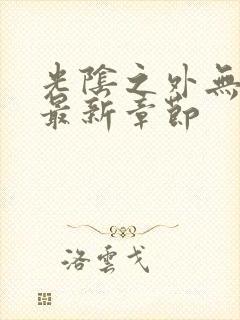 光陰之外無
最新章節
洛雲戈